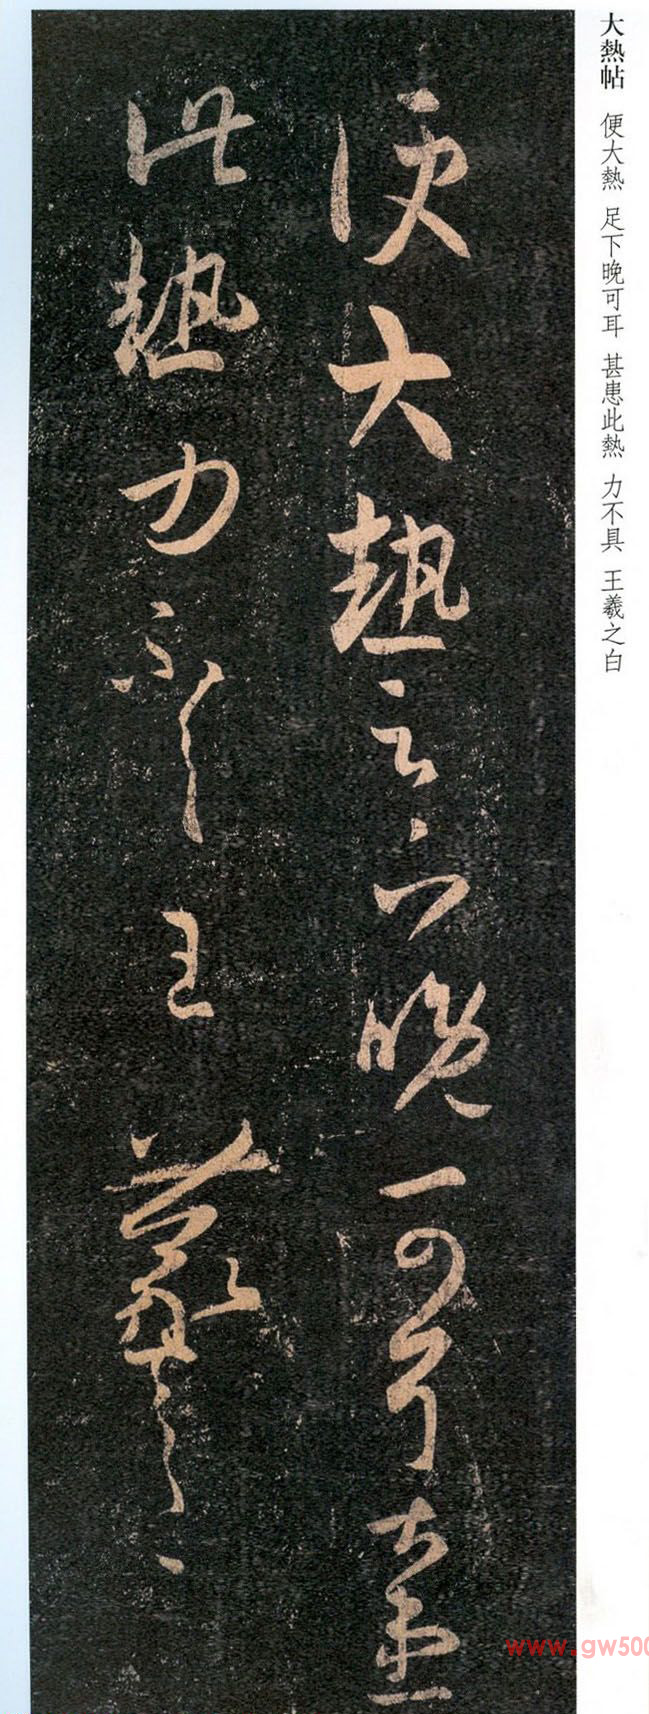 大熱帖 便大熱 足下晚可耳 甚患此熱 力不具 王羲之白
便大熱足下晚可耳甚患
此熱力不具王羲之白
www.gw500